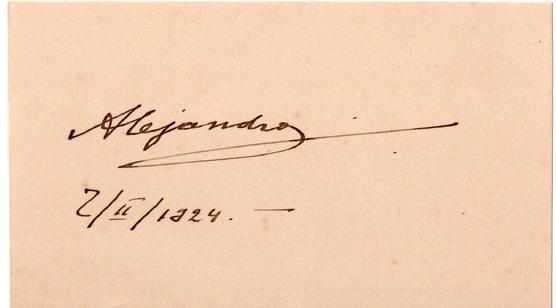 Alejandro
7/II/1924. —